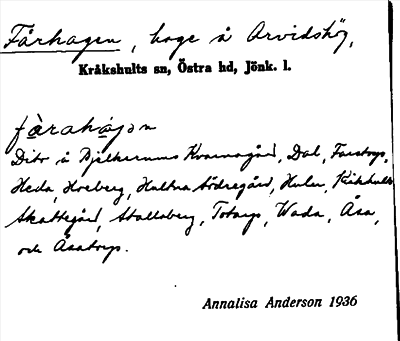 Fårhagen, hage å Arvidshög,
Kråkshults sn, Östra hd, Jönk. l.
fàrahágən
Dito å Bjälkerums Kvarnagård, Dal, Farstorp,
Heda, Horeberg, Hultna Södregård, Hulu, Kråkhult
Skattegård, Stalleberg, Totarp, Wada, Åsa,
och Åsatorp.
Annalisa Anderson 1936